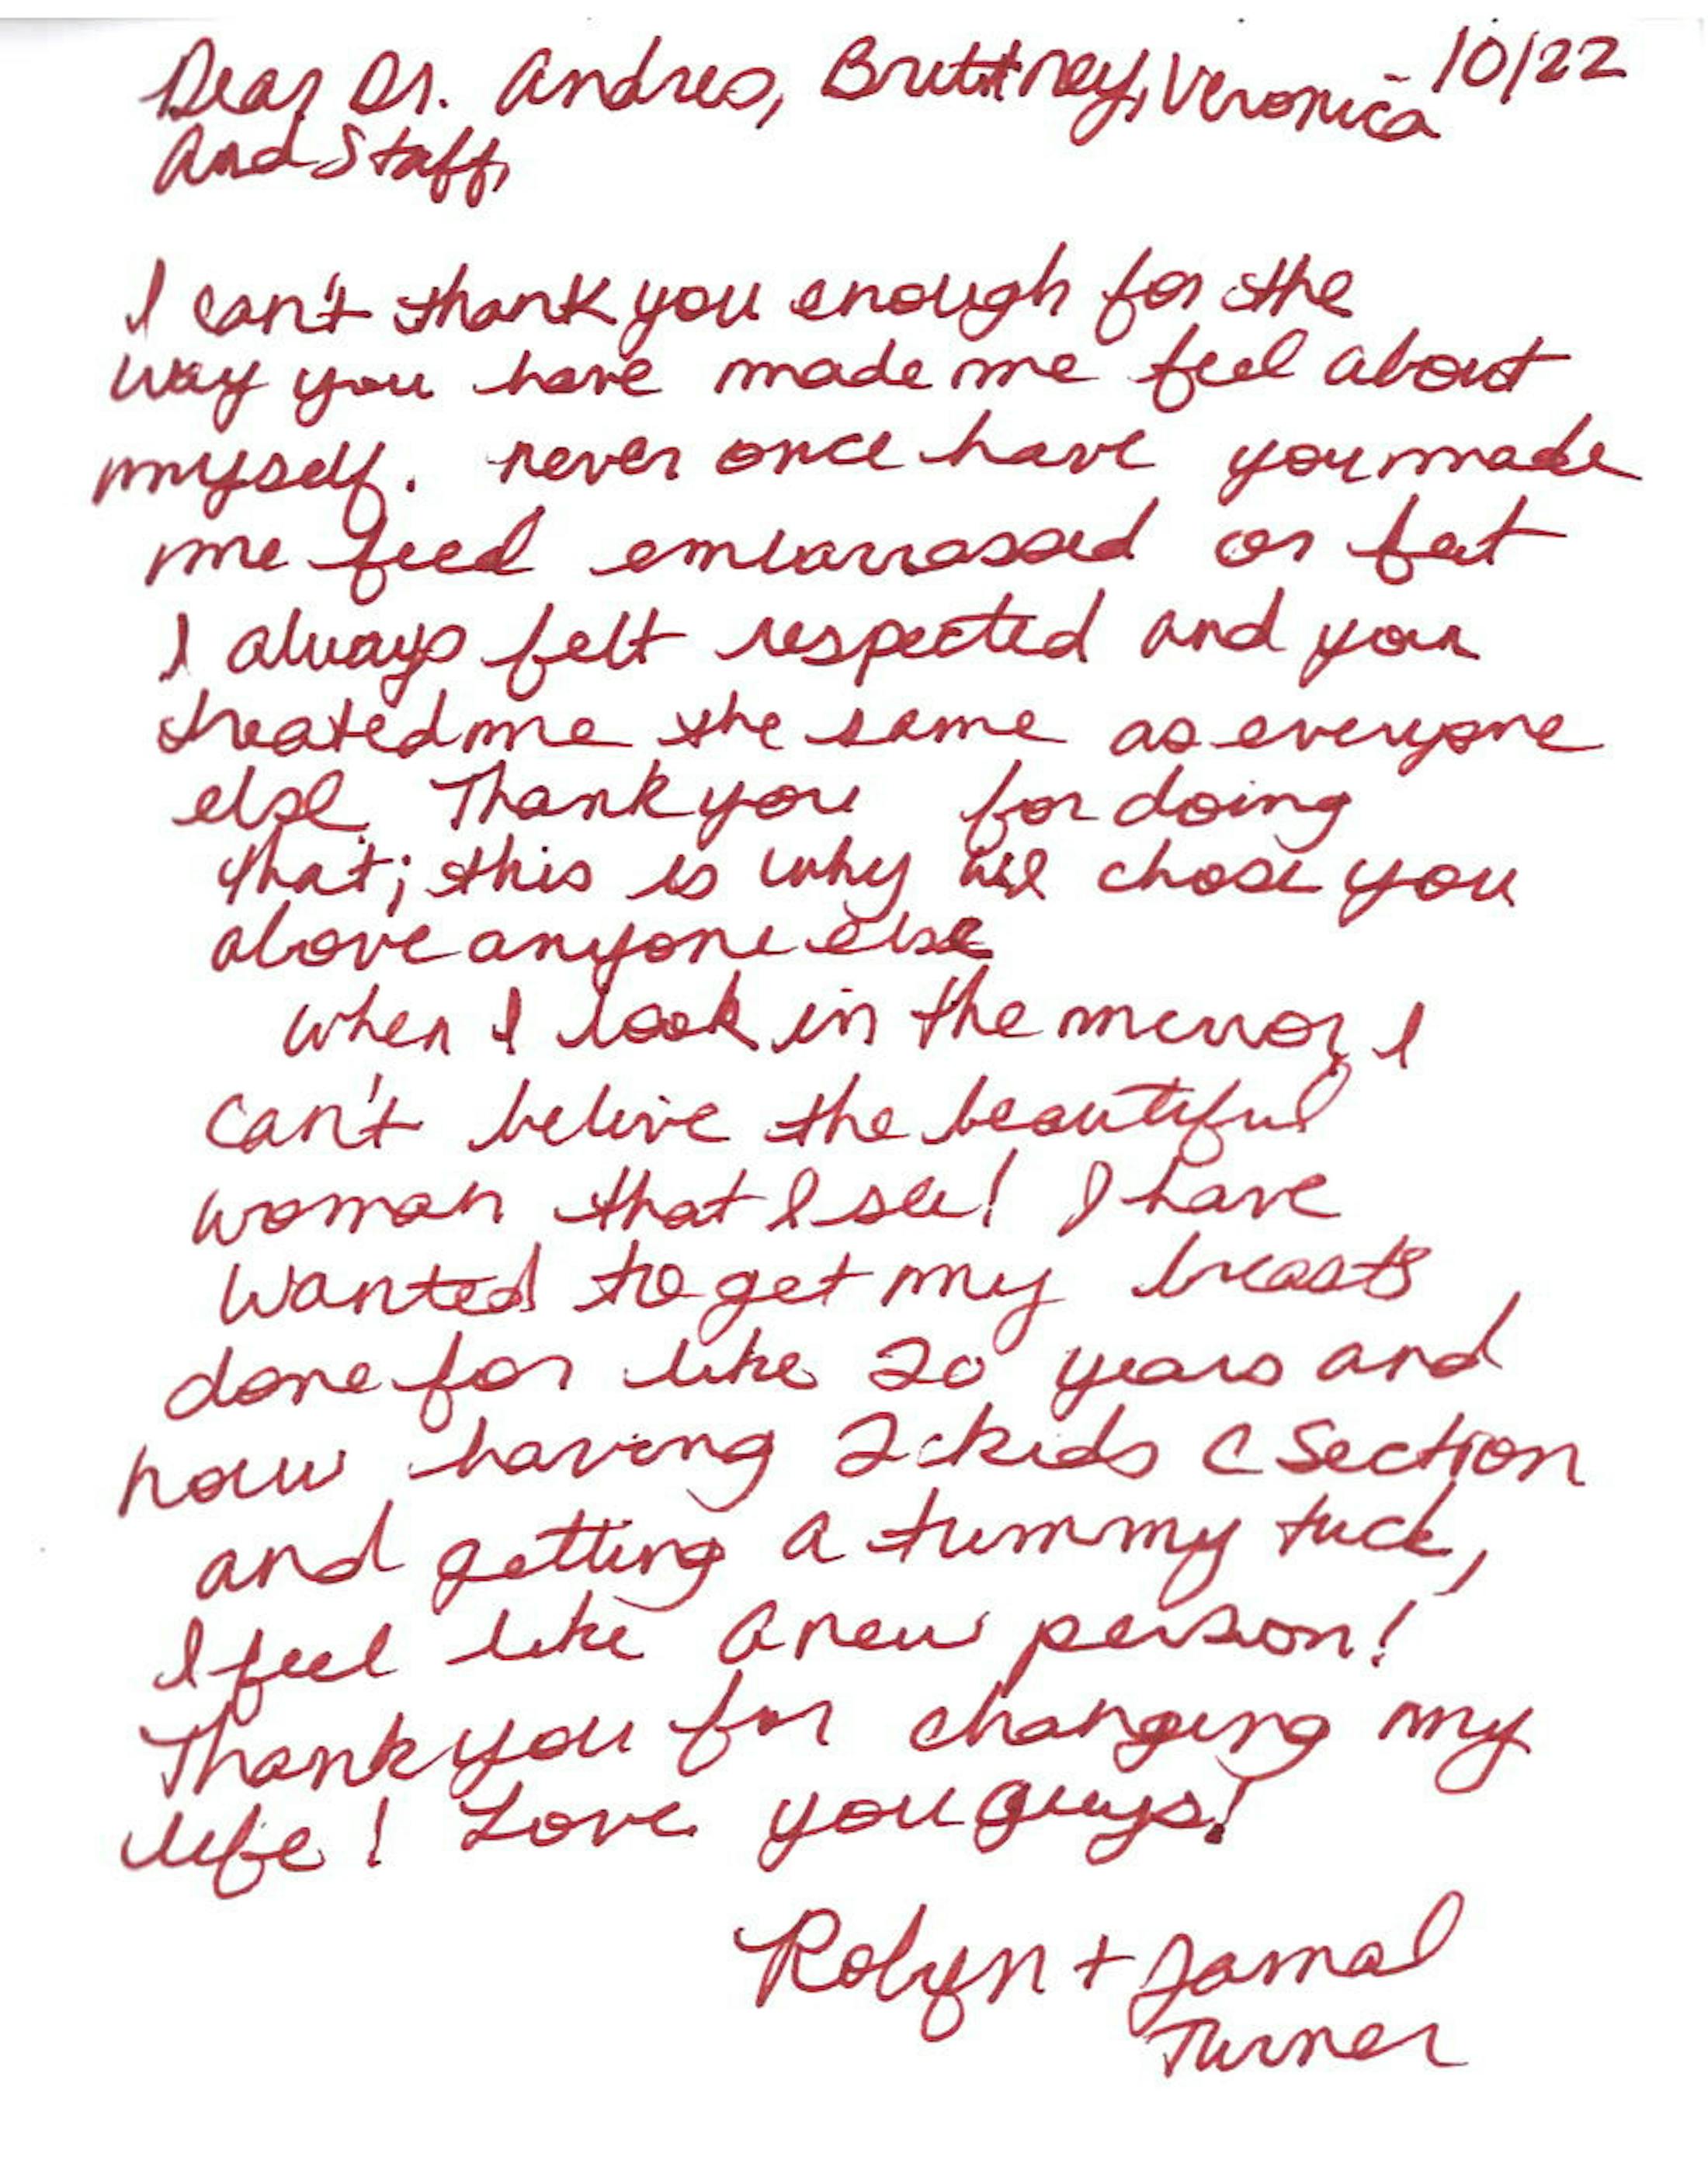 Dear Dr. Andres, Brittney, Veronica 10/22
And Staff,
I can't thank you enough for the
way you have made me feel about
myself. never once have you made
me feel embarrassed or fat
I always felt respected and you
treated me the same as everyone
else. Thank you for doing
that; this is why we chose you
above anyone else
when I look in the mirror, I
can't belive the beautiful
woman that I see! I have
wanted to get my breasts
done for like 20 years and
now having 2 kids C Section
and getting a tummy tuck,
I feel like a new person!
Thank you for changing my
life! Love you guys!
Robyn + Jamal
Turner